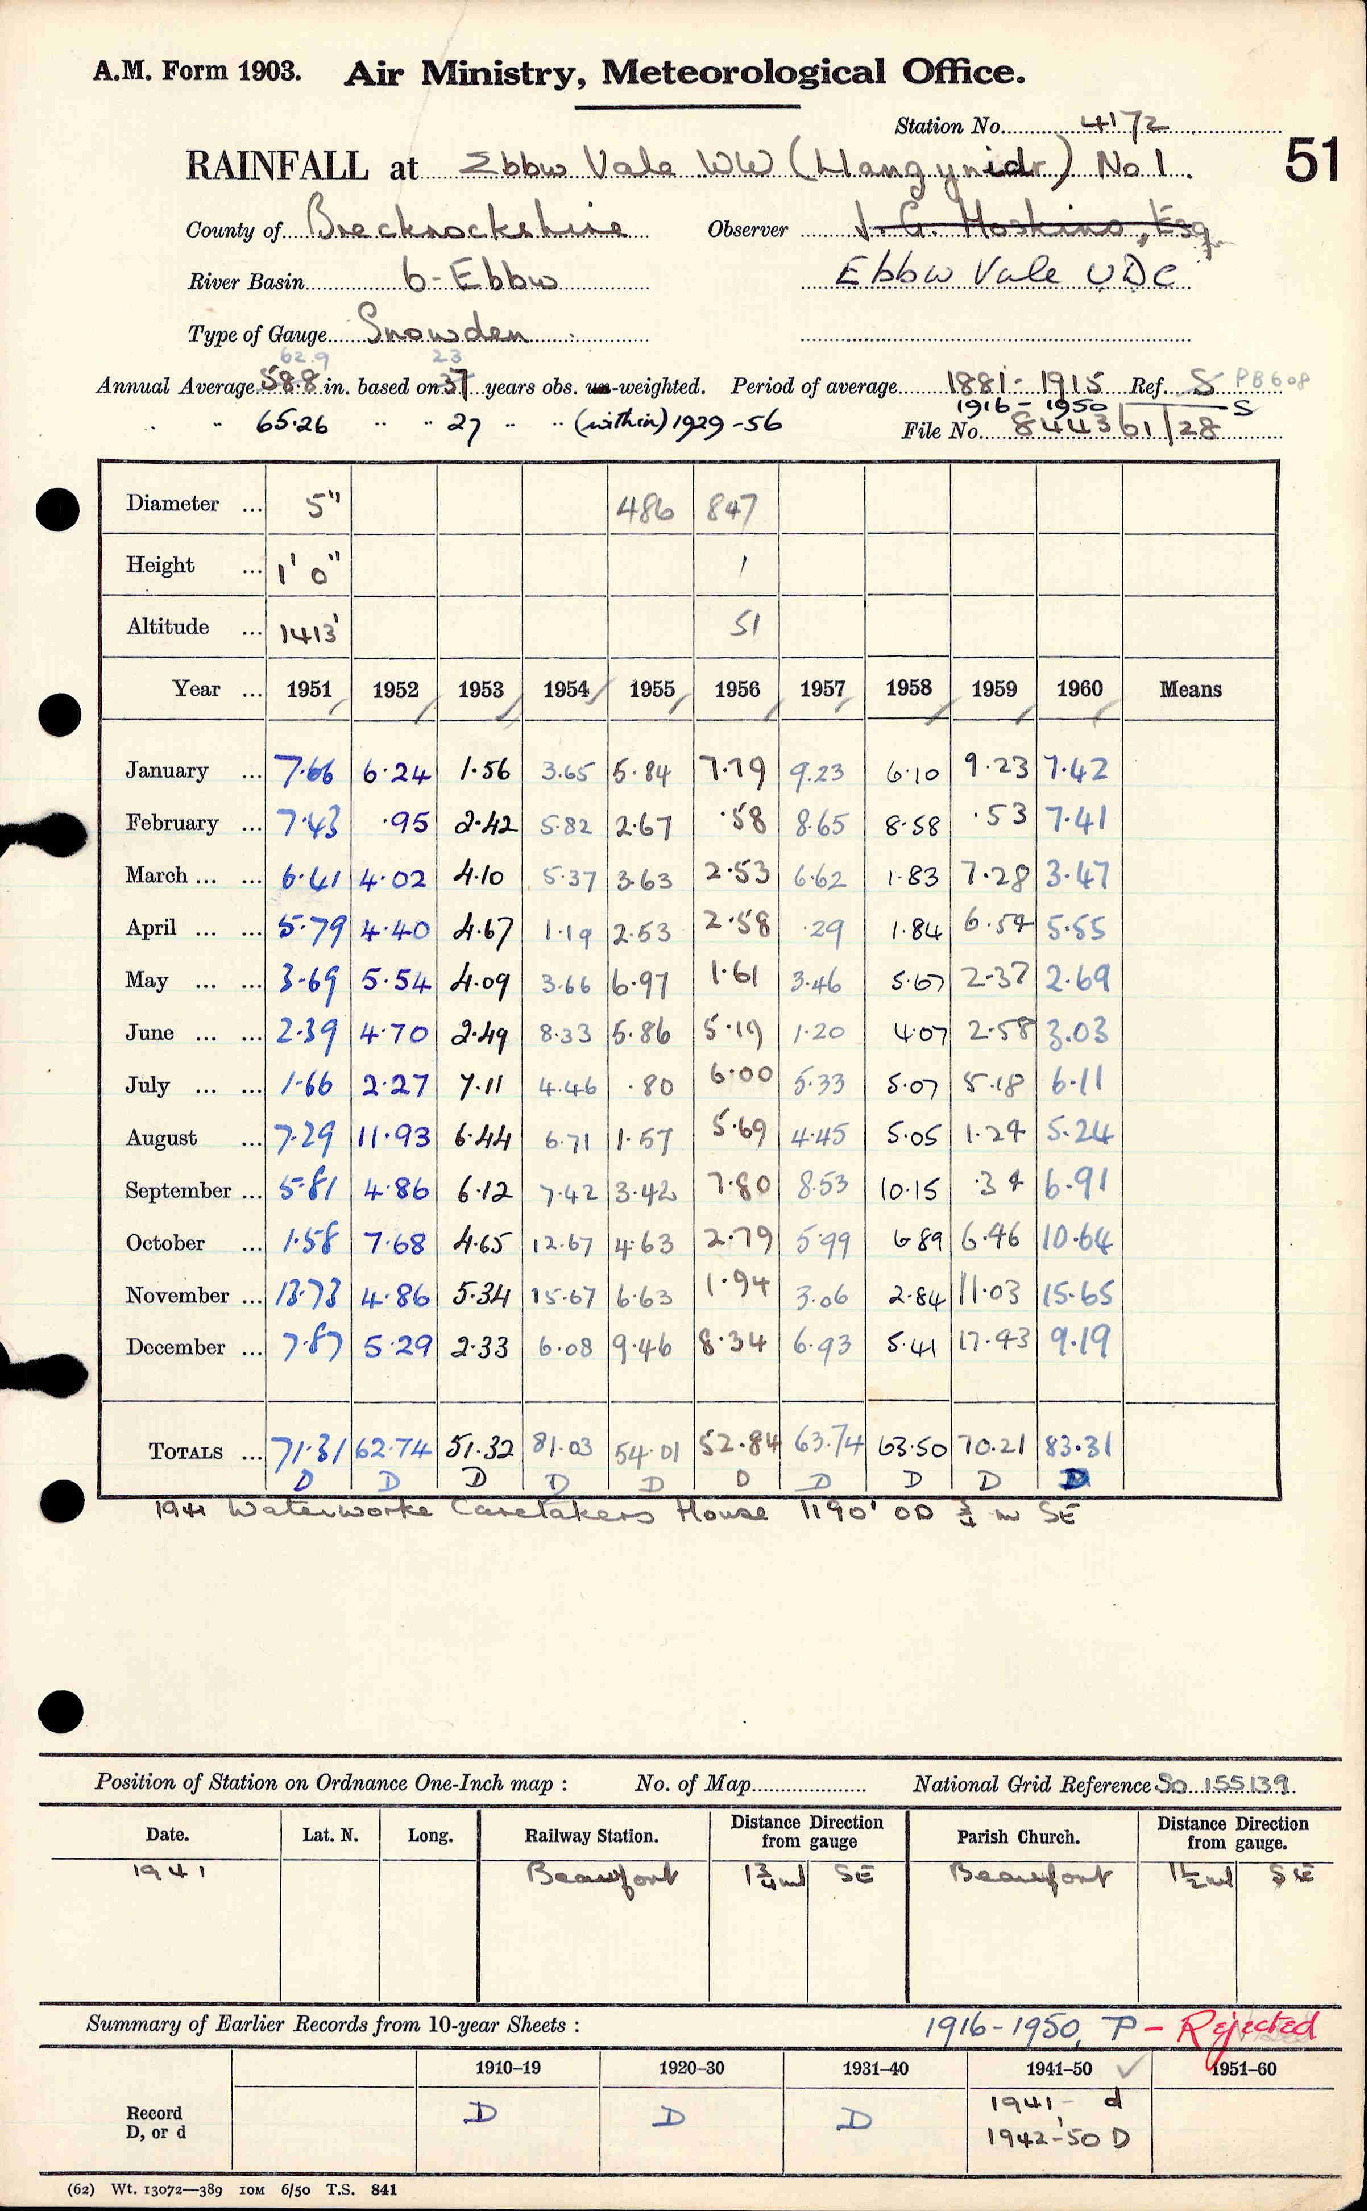 A.M. Form 1903. Air Ministry, Meteorological Office.
Station No. 4172
51
RAINFALL at Ebbw Vale WW (Llangynidr) No 1.
County of Brecknockshire Observer J. G. Hoskins, Esq
River Basin 6 - Ebbw Ebbw Vale UDC
Type of Gauge Snowden
62.9 23
Annual Average 58.8 in. based on 37 years obs. un-weighted. Period of average 1881 - 1915 Ref. S PB608
1916 - 1950 S
" " 65.26 " " 27 " " (within) 1929-56 File No. 844361/28
Diameter ... 5" 486 847
Height ... 1' 0" 1
Altitude ... 1413' 51
Year ... 1951 1952 1953 1954 1955 1956 1957 1958 1959 1960 Means
January ... 7.66 6.24 1.56 3.65 5.84 7.79 9.23 6.10 9.23 7.42
February ... 7.43 .95 2.42 5.82 2.67 .58 8.65 8.58 .53 7.41
March ... ... 6.41 4.02 4.10 5.37 3.63 2.53 6.62 1.83 7.28 3.47
April ... ... 5.79 4.40 4.67 1.19 2.53 2.58 .29 1.84 6.54 5.55
May ... ... 3.69 5.54 4.09 3.66 6.97 1.61 3.46 5.67 2.37 2.69
June ... ... 2.39 4.70 2.49 8.33 5.86 5.19 1.20 4.07 2.58 3.03
July ... ... 1.66 2.27 7.11 4.46 .80 6.00 5.33 5.07 5.18 6.11
August ... 7.29 11.93 6.44 6.71 1.57 5.69 4.45 5.05 1.24 5.24
September ... 5.81 4.86 6.12 7.42 3.42 7.80 8.53 10.15 .34 6.91
October ... 1.58 7.68 4.65 12.67 4.63 2.79 5.99 6.89 6.46 10.64
November ... 13.73 4.86 5.34 15.67 6.63 1.94 3.06 2.84 11.03 15.65
December ... 7.87 5.29 2.33 6.08 9.46 8.34 6.93 5.41 17.43 9.19
TOTALS ... 71.31 62.74 51.32 81.03 54.01 52.84 63.74 63.50 70.21 83.31
D D D D D D D D D D
1941 Waterworks Caretakers House 1190' OD ¾ m SE
Position of Station on Ordnance One-Inch map : No. of Map National Grid Reference So 155139
Date. Lat. N. Long. Railway Station. Distance from gauge Direction Parish Church. Distance from gauge. Direction
1941 Beaufort 1¾ml SE Beaufort 1½ml SE
Summary of Earlier Records from 10-year Sheets : 1916-1950, P - Rejected
1910-19 1920-30 1931-40 1941-50 ✓ 1951-60
Record D, or d D D D 1941, d
1942-50 D
(62) Wt. 13072—389 IOM 6/50 T.S. 841